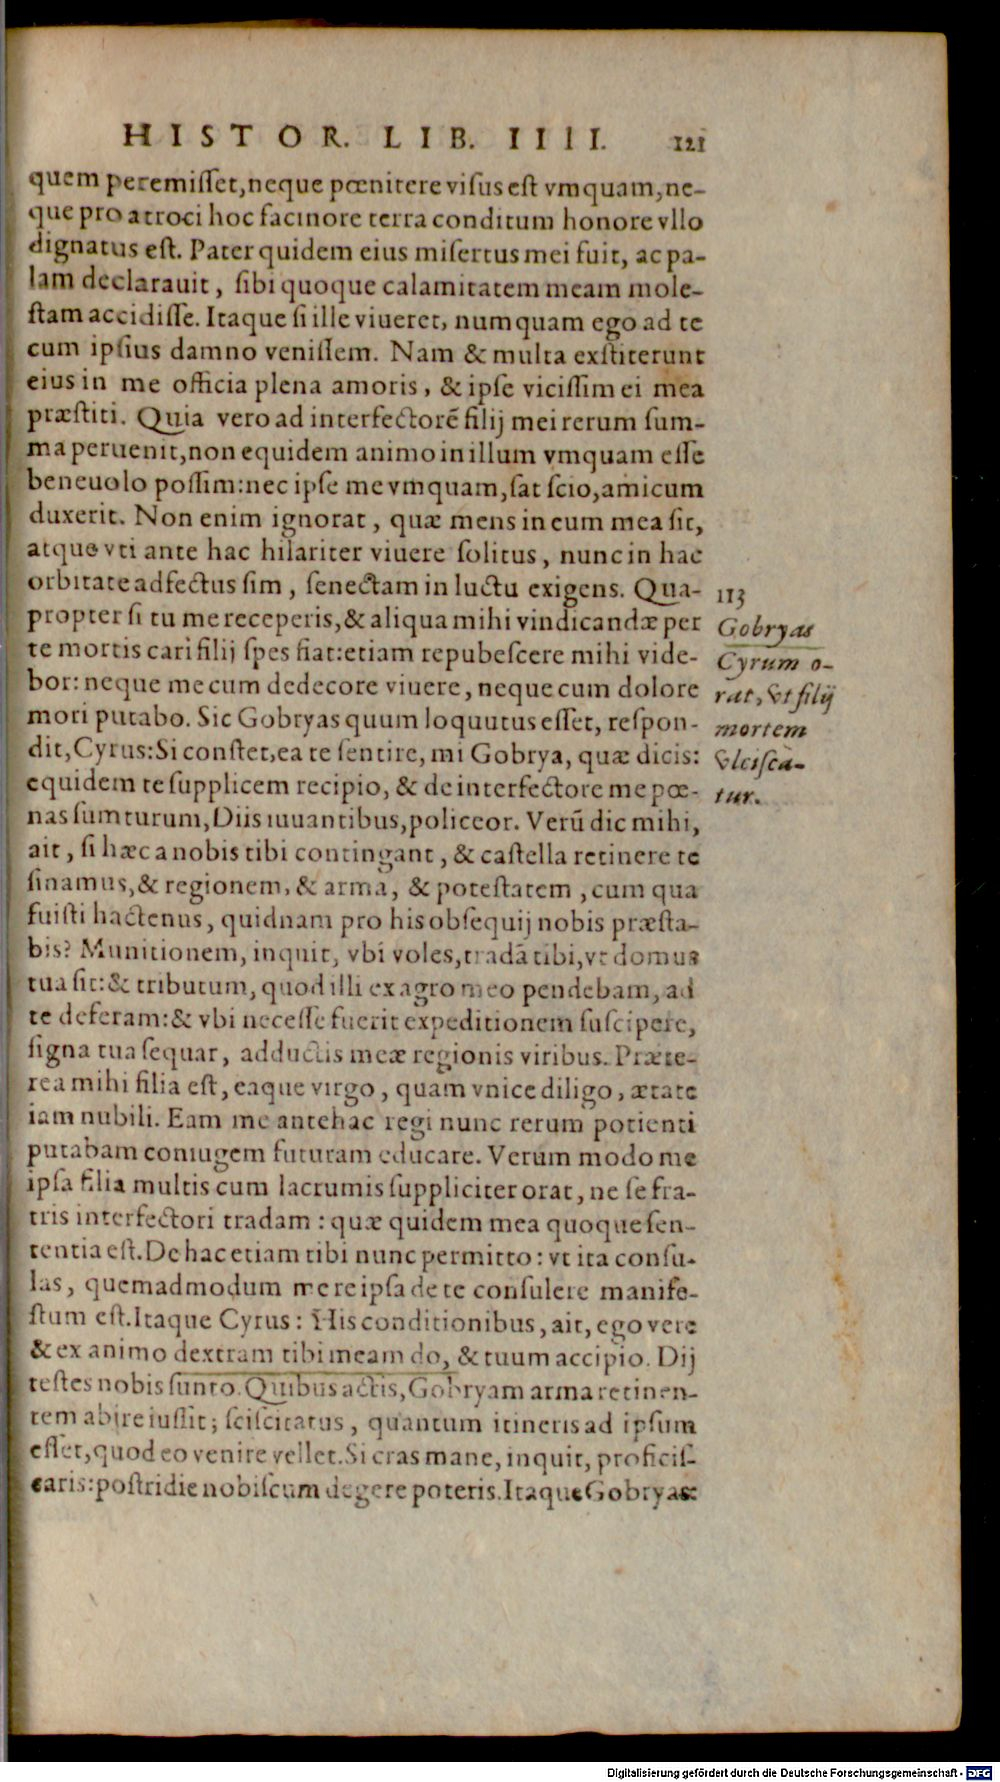 HISTOR. LIB. IIII. 121
quem peremisset, neque pœnitere visus est vmquam, ne-
que pro atroci hoc facinore terra conditum honore vllo
dignatus est. Pater quidem eius misertus mei fuit, ac pa-
lam declarauit, sibi quoque calamitatem meam mole-
stam accidisse. Itaque si ille viueret, numquam ego ad te
cum ipsius damno venissem. Nam & multa exstiterunt
eius in me officia plena amoris, & ipse vicissim ei mea
præstiti. Quia vero ad interfectorē filij mei rerum sum-
ma peruenit, non equidem animo in illum vmquam esse
beneuolo possim: nec ipse me vmquam, sat scio, amicum
duxerit. Non enim ignorat, quæ mens in eum mea sit,
atque vti ante hac hilariter viuere solitus, nunc in hac
orbitate adfectus sim, senectam in luctu exigens. Qua-
propter si tu me receperis, & aliqua mihi vindicandæ per
te mortis cari filij spes fiat: etiam repubescere mihi vide-
bor: neque mecum dedecore viuere, neque cum dolore
mori putabo. Sic Gobryas quum loquutus esset, respon-
dit, Cyrus: Si constet, ea te sentire, mi Gobrya, quæ dicis:
equidem te supplicem recipio, & de interfectore me pœ-
nas sumturum, Diis iuuantibus, policeor. Verū dic mihi,
ait, si hæc a nobis tibi contingant, & castella retinere te
sinamus, & regionem, & arma, & potestatem, cum qua
fuisti hactenus, quidnam pro his obsequij nobis præsta-
bis? Munitionem, inquit, vbi voles, tradā tibi, vt domus
tua sit: & tributum, quod illi ex agro meo pendebam, ad
te deferam: & vbi necesse fuerit expeditionem suscipere,
signa tua sequar, adductis meæ regionis viribus. Præte-
rea mihi filia est, eaque virgo, quam vnice diligo, ætate
iam nubili. Eam me antehac regi nunc rerum potienti
putabam coniugem futuram educare. Verum modo me
ipsa filia multis cum lacrumis suppliciter orat, ne se fra-
tris interfectori tradam: quæ quidem mea quoque sen-
tentia est. De hac etiam tibi nunc permitto: vt ita consu-
las, quemadmodum me reipsa de te consulere manife-
stum est. Itaque Cyrus: His conditionibus, ait, ego vere
& ex animo dextram tibi meam do, & tuum accipio. Dij
testes nobis sunto. Quibus actis, Gobryam arma retinen-
tem abire iussit; sciscitatus, quantum itineris ad ipsum
esset, quod eo venire vellet. Si cras mane, inquit, proficis-
caris: postridie nobiscum degere poteris. Itaque Gobryas
113
Gobryas
Cyrum o-
rat, vt filij
mortem
vlciscā-
tur.
Digitalisierung gefördert durch die Deutsche Forschungsgemeinschaft - DFG